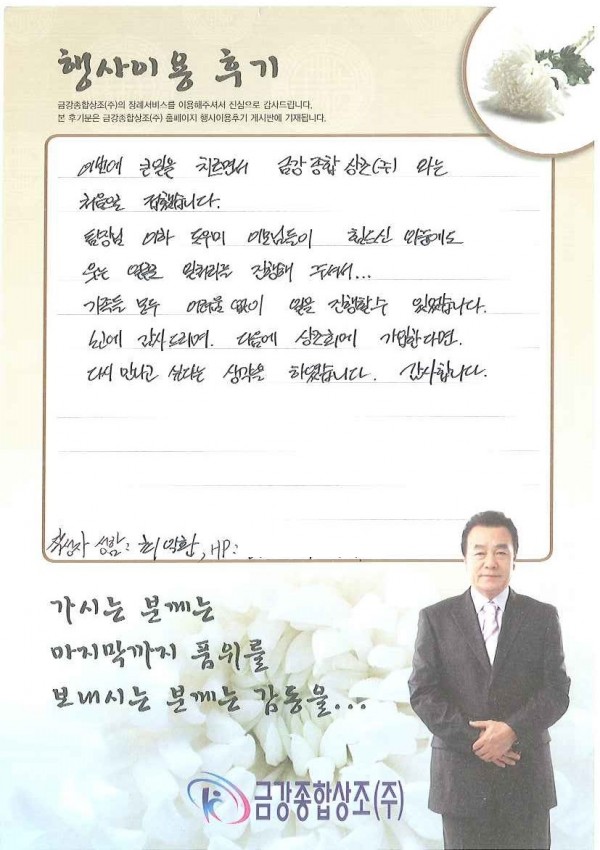 행사이용 후기
금강종합상조(주)의 장례서비스를 이용해주셔서 진심으로 감사드립니다.
본 후기분은 금강종합상조(주) 홈페이지 행사이용후기 게시반에 기재됩니다.
이번에 큰일을 치르면서 금강종합상조(주) 와는
처음으로 접했습니다.
팀장님 이하 도우미 이모님들이 힘드신 와중에도
웃는 얼굴로 일처리를 진행해 주셔서...
가족들 모두 어려움 없이 일을 진행할수 있었습니다.
감사드리며. 다음에 상조회에 가입한다면.
다시 만나고 싶다는 생각을 하였습니다. 감사합니다.
작성자 성함: 최 환, HP:
가시는 분께는
마지막까지 품위를
보내시는 분께는 감동을...
금강종합상조(주)